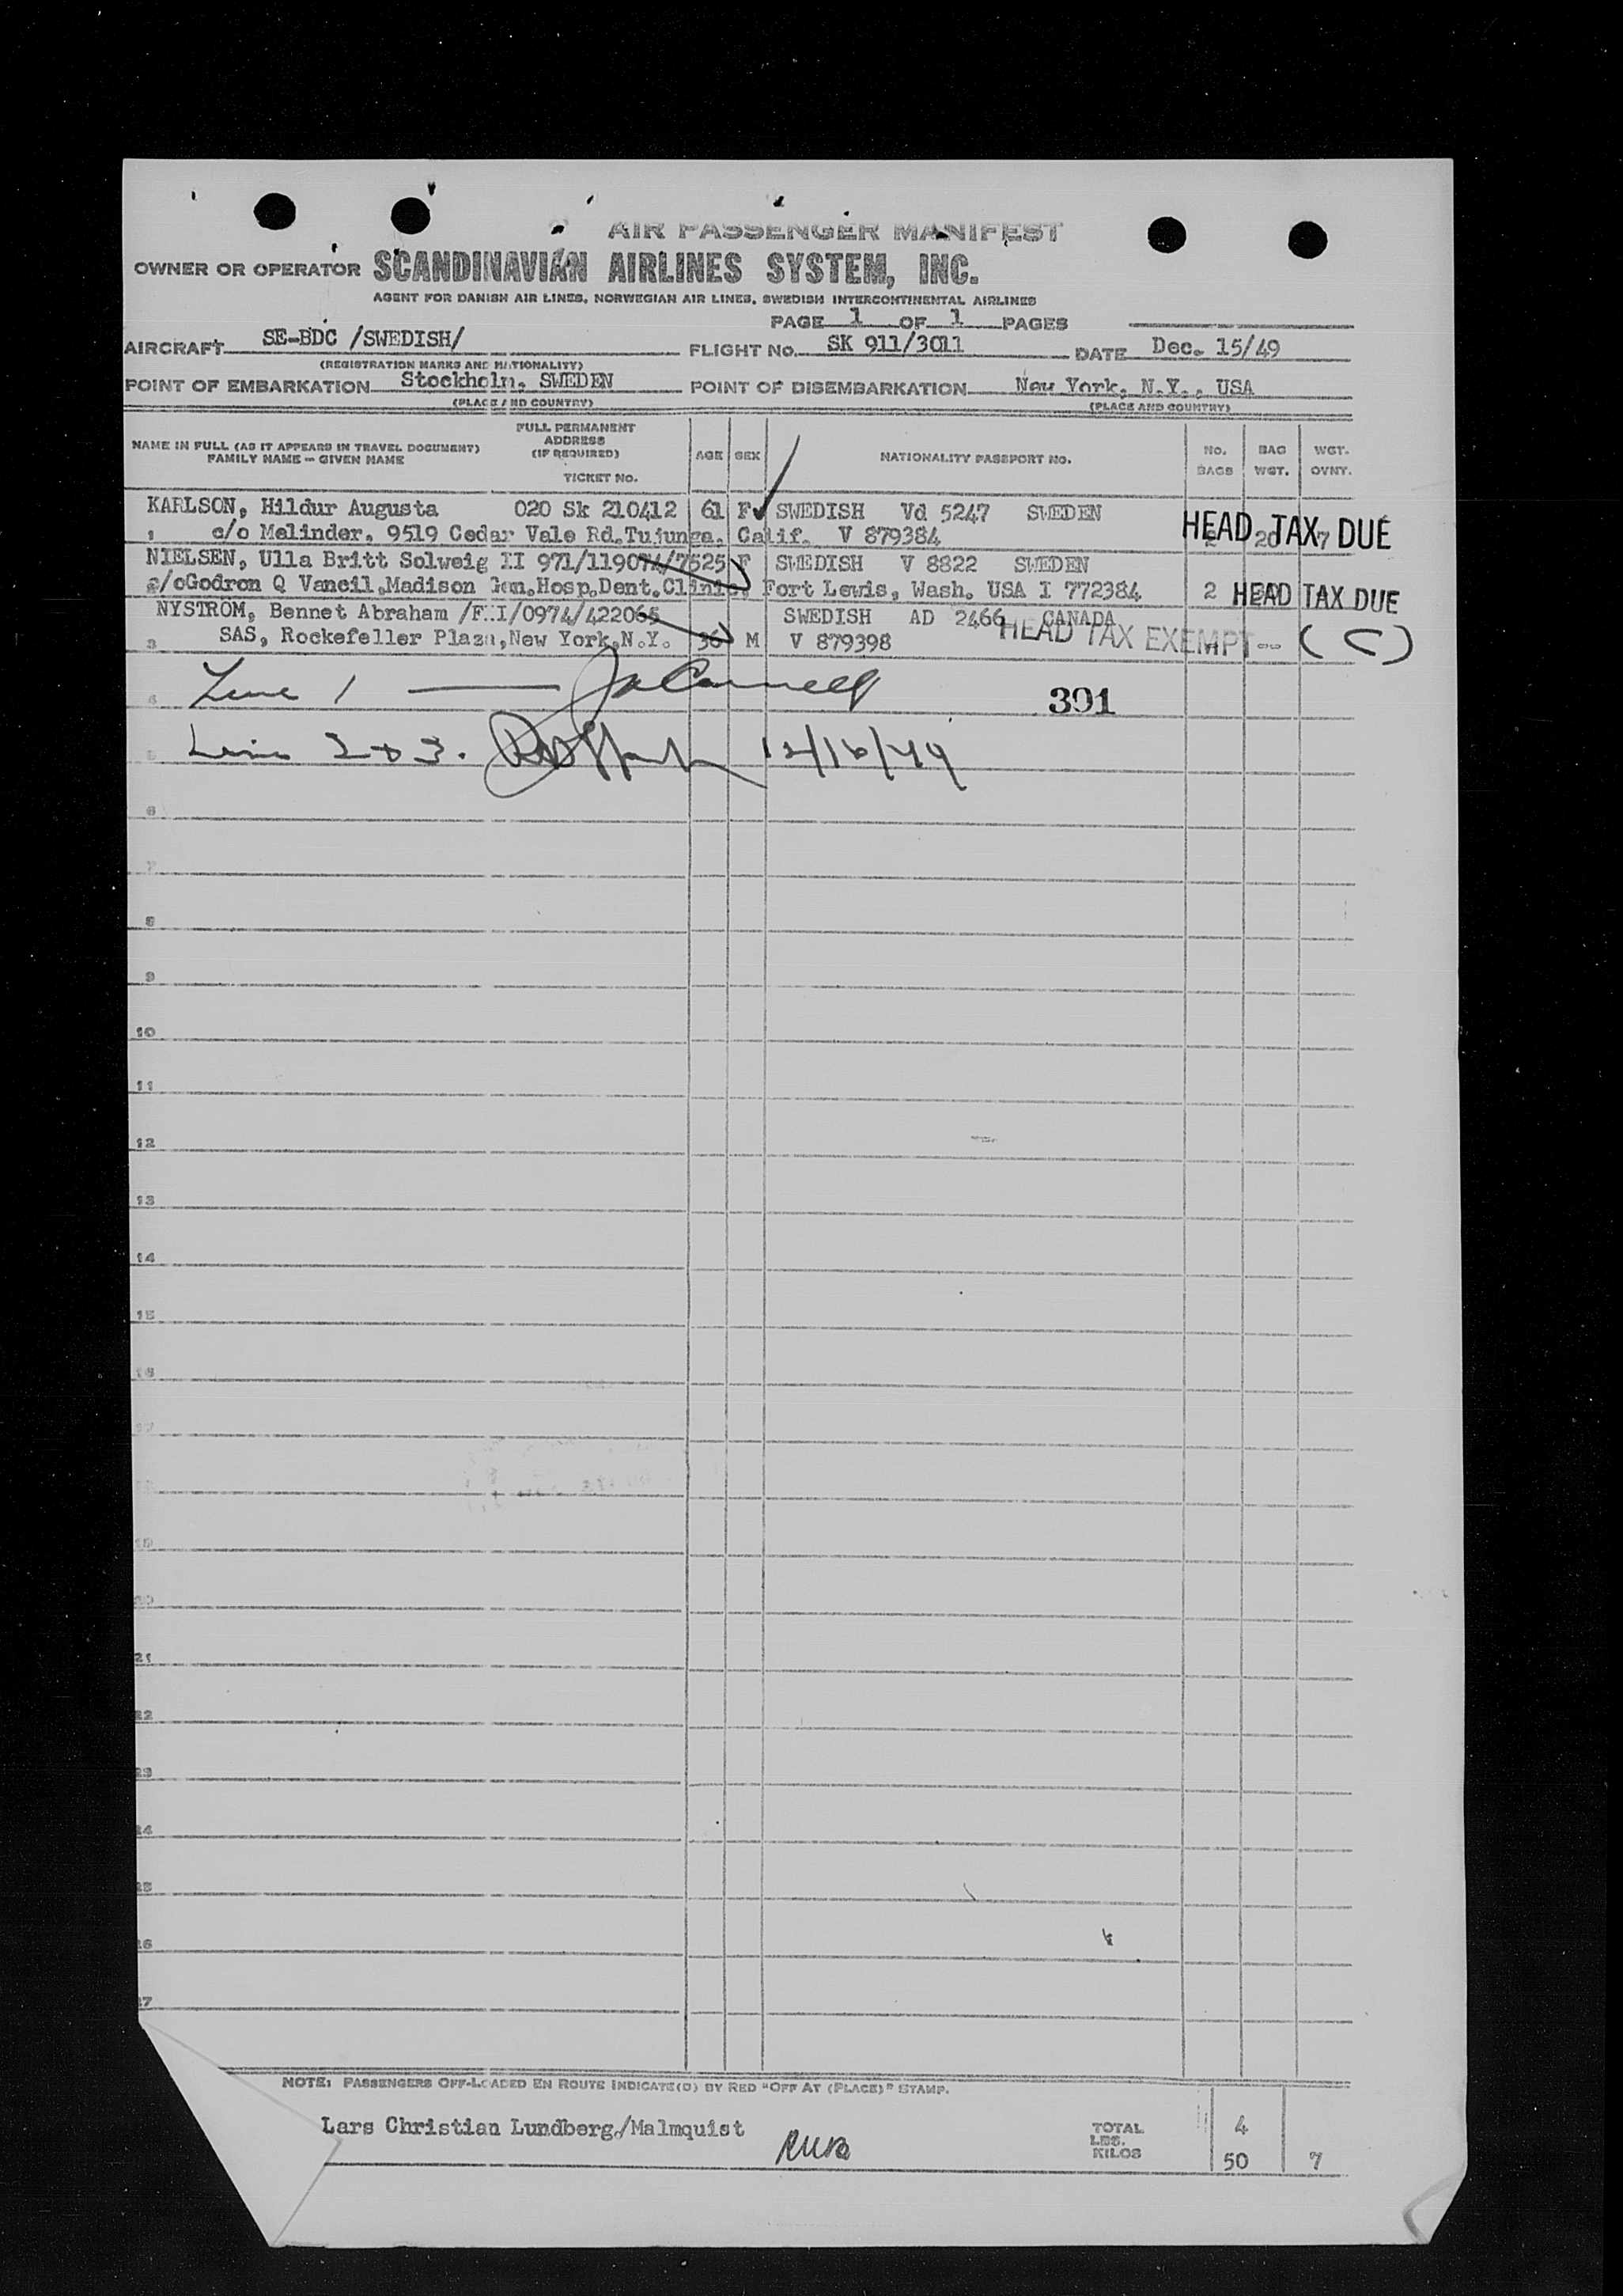 AIR PASSENGER MANIFEST
OWNER OR OPERATOR SCANDINAVIAN AIRLINES SYSTEM, INC.
AGENT FOR DANISH AIR LINES, NORWEGIAN AIR LINES, SWEDISH INTERCONTINENTAL AIRLINES
PAGE 1 OF 1 PAGES
AIRCRAFT SE-BDC /SWEDISH/ FLIGHT No. SK 911/3011 DATE Dec. 15/49
(REGISTRATION MARKS AND NATIONALITY)
POINT OF EMBARKATION Stockholm, SWEDEN POINT OF DISEMBARKATION New York, N.Y., USA
(PLACE AND COUNTRY) (PLACE AND COUNTRY)
NAME IN FULL (AS IT APPEARS IN TRAVEL DOCUMENT) FAMILY NAME - GIVEN NAME
FULL PERMANENT ADDRESS (IF REQUIRED) TICKET NO.
AGE SEX NATIONALITY PASSPORT NO. NO. BAGS BAG WGT. WGT. OVNT.
KARLSON, Hildur Augusta 020 Sk 210412 61 F SWEDISH Vd 5247 SWEDEN
c/o Melinder, 9519 Cedar Vale Rd.Tujunga. Calif. V 879384 20 7 HEAD TAX DUE
NIELSEN, Ulla Britt Solweig II 971/119074/7525 F SWEDISH V 8822 SWEDEN
c/oGodron Q Vancil.Madison Gen.Hosp.Dent.Clinic, Fort Lewis, Wash. USA I 772384 2 HEAD TAX DUE
NYSTROM, Bennet Abraham /F..I/0974/422065 SWEDISH AD 2466 CANADA
3 SAS, Rockefeller Plaza,New York,N.Y. 36 M V 879398 HEAD TAX EXEMPT -- (C)
4 Line 1 301
5 Lines 2 & 3. 12/16/49
6
7
8
9
10
11
12
13
14
15
16
17
18
19
20
21
22
23
24
25
26
27
NOTE: PASSENGERS OFF-LOADED EN ROUTE INDICATE(D) BY RED "OFF AT (PLACE)" STAMP.
Lars Christian Lundberg/Malmquist TOTAL 4
LBS.
KILOS 50 7